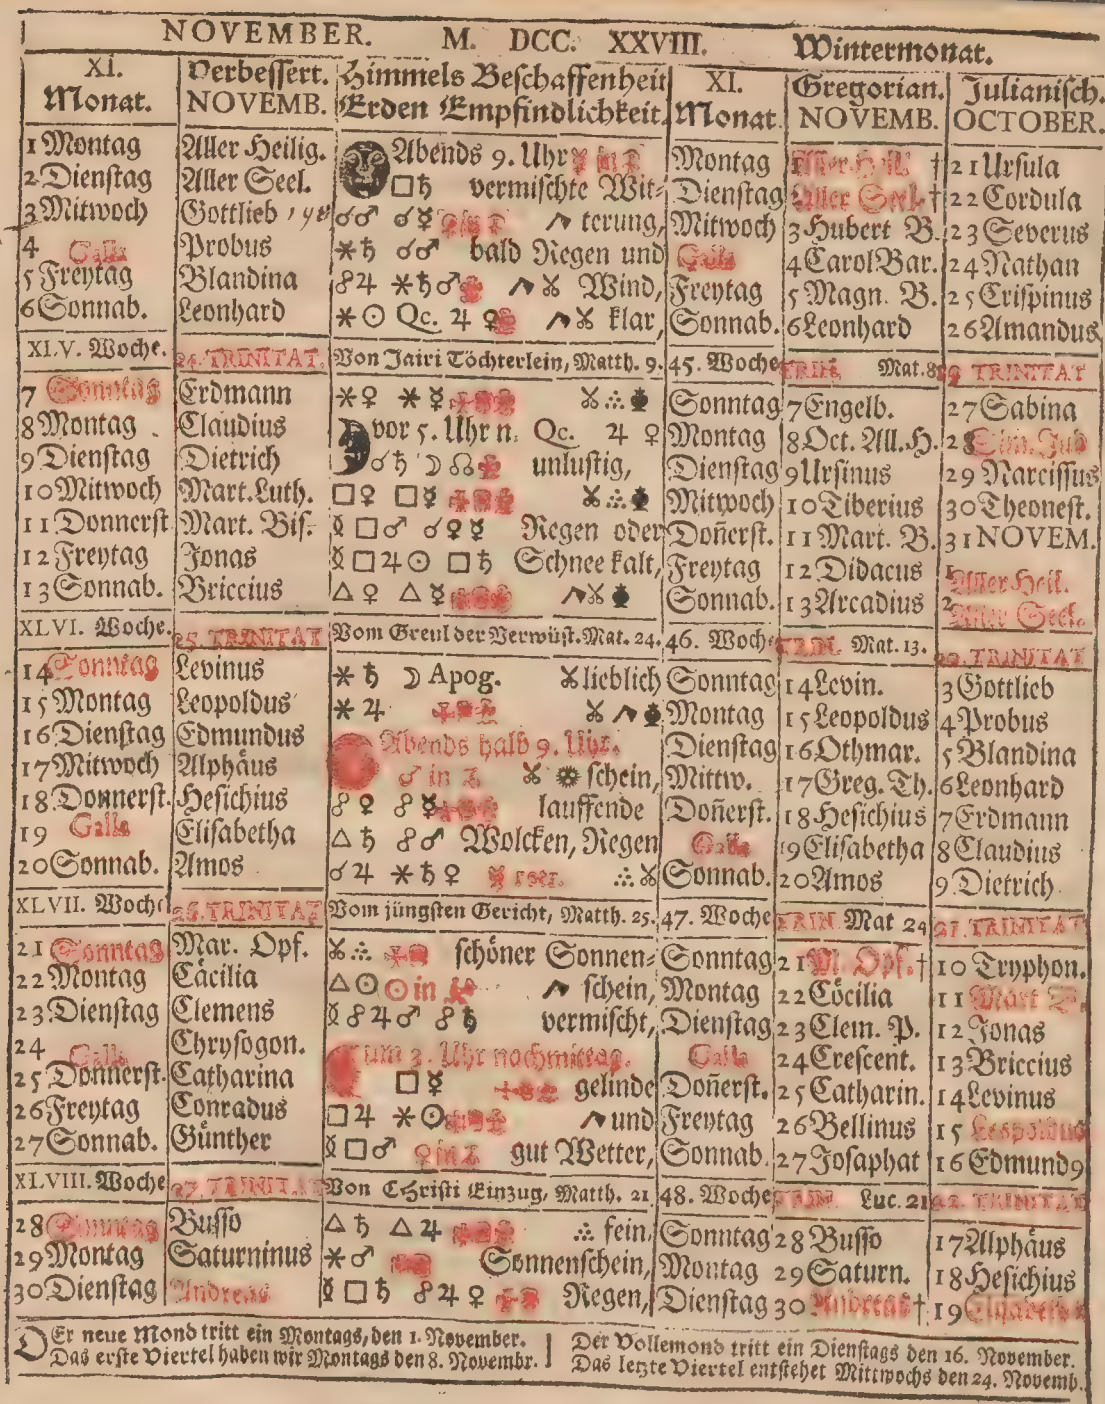 NOVEMBER. M. DCC. XXVIII. Wintermonat.
XI. Monat. Verbessert. NOVEMB. Himmels Beschaffenheit Erden Empfindlichkeit. XI. Monat. Gregorian. NOVEMB. Julianisch. OCTOBER.
1 Montag Aller Heilig. Abends 9. Uhr Montag Aller Heil. † 21 Ursula
2 Dienstag Aller Seel. □♄ vermischte Wit= Dienstag Aller Seel. † 22 Cordula
3 Mitwoch Gottlieb ☌♂ ☌☿ terung, Mitwoch 3 Hubert B. 23 Severus
4 Galla Probus ⚹♄ ☌♂ bald Regen und Galla 4 Carol Bar. 24 Nathan
5 Freytag Blandina ☍♃ ⚹♄♂ Wind, Freytag 5 Magn. B. 25 Crispinus
6 Sonnab. Leonhard ⚹☉ Qc. ♃ ♀ klar, Sonnab. 6 Leonhard 26 Amandus
XLV. Woche. 24. TRINITAT. Von Jairi Töchterlein, Matth. 9. 45. Woche TRIN. Mat. 8 TRINITAT
7 Sonntag Erdmann ⚹♀ ⚹☿ Sonntag 7 Engelb. 27 Sabina
8 Montag Claudius vor 5. Uhr n. Qc. ♃ ♀ Montag 8 Oct. All. H. 28 Sim. Jud
9 Dienstag Dietrich ☌♄ ☽☊ unlustig, Dienstag 9 Ursinus 29 Narcissus
10 Mitwoch Mart. Luth. □♀ □☿ Mitwoch 10 Tiberius 30 Theonest.
11 Donnerst Mart. Bis. ☿□♂ ☌♀☿ Regen oder Doñerst. 11 Mart. B. 31 NOVEM.
12 Freytag Jonas ☿□♃☉ □♄ Schnee kalt, Freytag 12 Didacus 1 Aller Heil.
13 Sonnab. Briccius △♀ △☿ Sonnab. 13 Arcadius 2 Aller Seel.
XLVI. Woche. 25. TRINITAT Vom Greul der Verwüst. Mat. 24. 46. Woche TRIN. Mat. 13. TRINITAT
14 Sonntag Levinus ⚹♄ ☽ Apog. lieblich Sonntag 14 Levin. 3 Gottlieb
15 Montag Leopoldus ⚹♃ Montag 15 Leopoldus 4 Probus
16 Dienstag Edmundus Abends halb 9. Uhr. Dienstag 16 Othmar. 5 Blandina
17 Mitwoch Alphäus ♂ in schein, Mittw. 17 Greg. Th. 6 Leonhard
18 Donnerst. Hesichius ☍♀ ☍☿ lauffende Doñerst. 18 Hesichius 7 Erdmann
19 Galla Elisabetha △♄ ☍♂ Wolcken, Regen Galla 19 Elisabetha 8 Claudius
20 Sonnab. Amos ☌♃ ⚹♄♀ Sonnab. 20 Amos 9 Dietrich
XLVII. Woche 26. TRINITAT Vom jüngsten Gericht, Matth. 25. 47. Woche TRIN. Mat 24 TRINITAT
21 Sonntag Mar. Opf. schöner Sonnen= Sonntag 21 M. Opf. † 10 Tryphon.
22 Montag Cäcilia △☉ ☉ in schein, Montag 22 Cöcilia 11 Mart B.
23 Dienstag Clemens ☿☍♃♂ ☍♄ vermischt, Dienstag 23 Clem. P. 12 Jonas
24 Galla Chrysogon. um 3. Uhr nachmittag. Galla 24 Crescent. 13 Briccius
25 Donnerst. Catharina □☿ gelinde Doñerst. 25 Catharin. 14 Levinus
26 Freytag Conradus □♃ ⚹☉ und Freytag 26 Bellinus 15 Leopoldus
27 Sonnab. Günther ☿□♂ ♀ in gut Wetter, Sonnab. 27 Josaphat 16 Edmund9
XLVIII. Woche 27. TRINITAT Von Christi Einzug, Matth. 21 48. Woche TRIN. Luc. 21 TRINITAT
28 Sonntag Busso △♄ △♃ fein, Sonntag 28 Busso 17 Alphäus
29 Montag Saturninus ⚹♂ Sonnenschein, Montag 29 Saturn. 18 Hesichius
30 Dienstag Andreas ☿□♄ ☍♃♀ Regen, Dienstag 30 Andreas † 19 Elisabetha
DEr neue Mond tritt ein Montags, den 1. November.
Das erste Viertel haben wir Montags den 8. Novembr.
Der Vollemond tritt ein Dienstags den 16. November.
Das letzte Viertel entstehet Mittwochs den 24. Novemb.